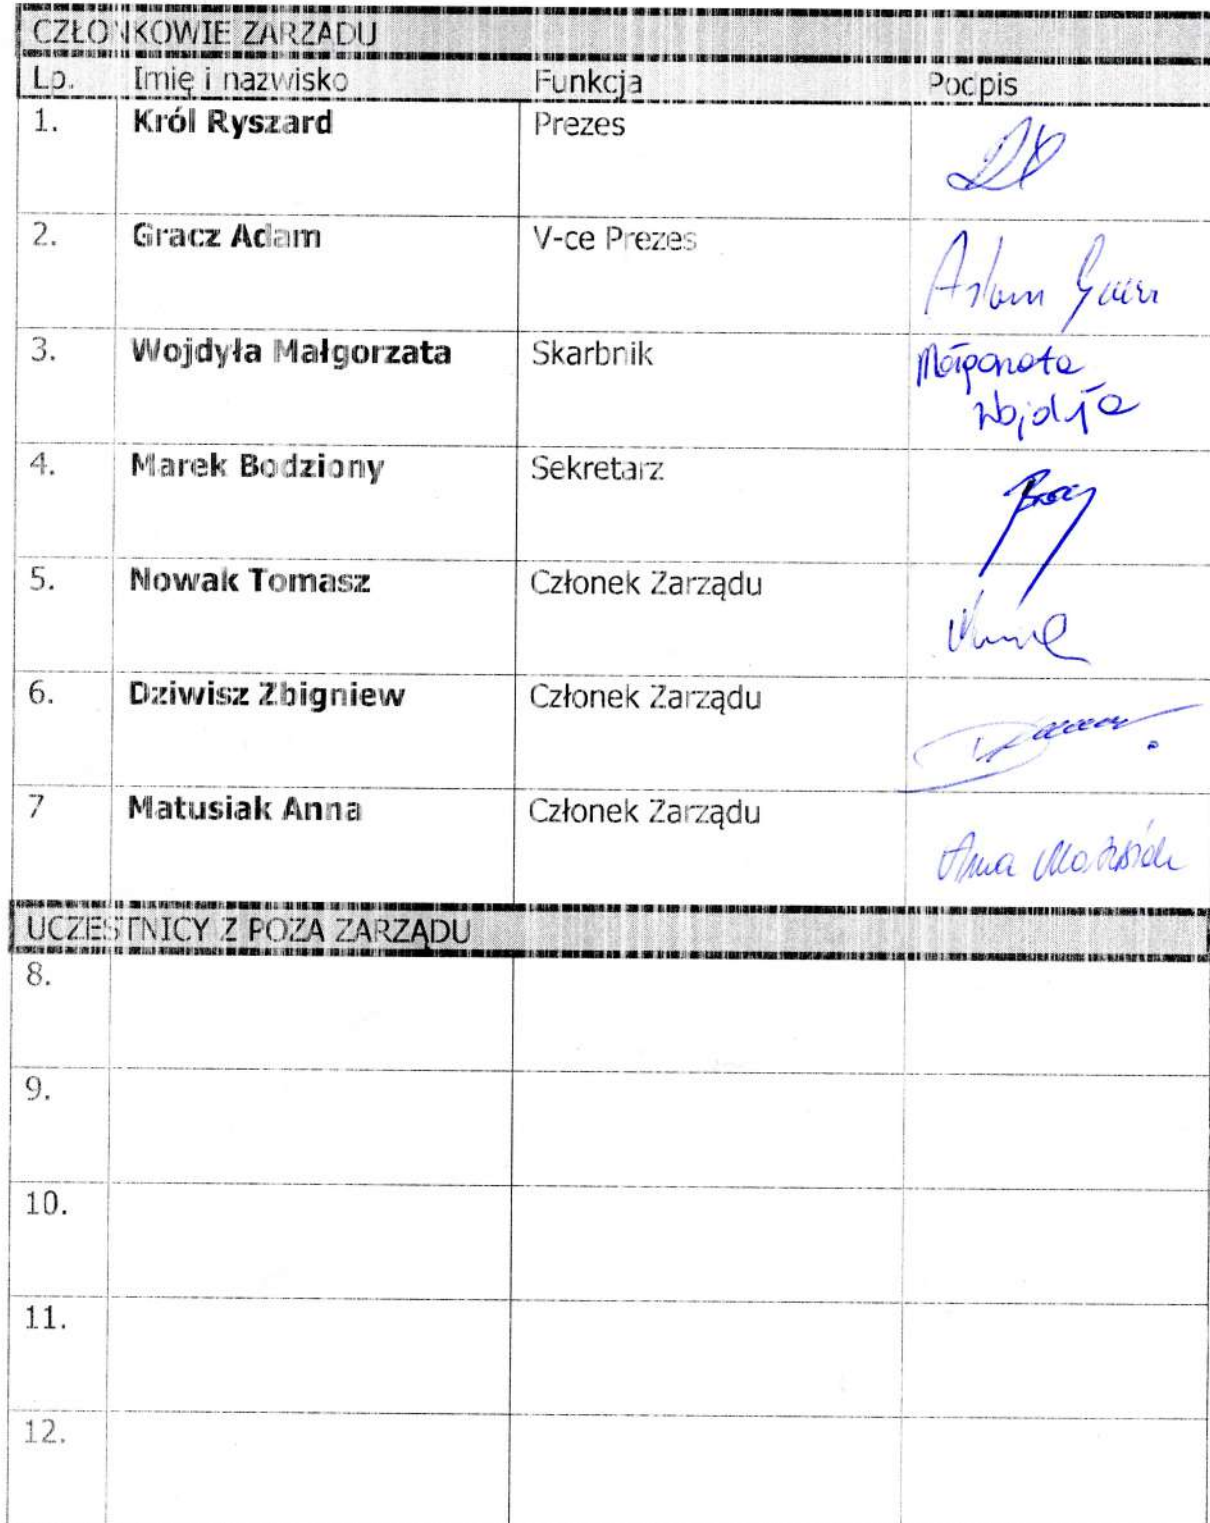 CZŁONKOWIE ZARZĄDU
Lp. Imię i nazwisko Funkcja Podpis
1. Król Ryszard Prezes
2. Gracz Adam V-ce Prezes Adam Gracz
3. Wojdyła Małgorzata Skarbnik Małgorzata
Wojdyła
4. Marek Bodziony Sekretarz
5. Nowak Tomasz Członek Zarządu
6. Dziwisz Zbigniew Członek Zarządu
7 Matusiak Anna Członek Zarządu Anna Matusiak
UCZESTNICY Z POZA ZARZĄDU
8.
9.
10.
11.
12.